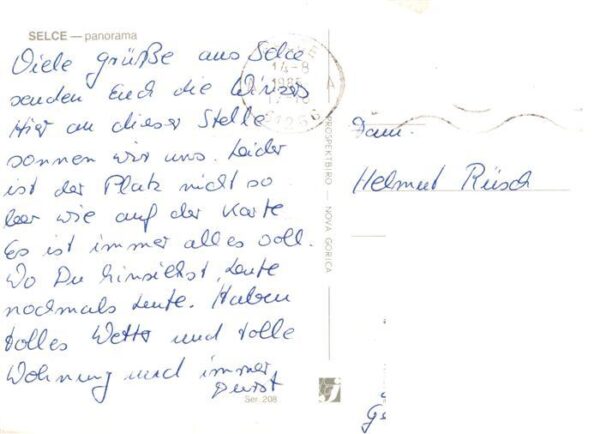 SELCE — panorama
Viele Grüße aus Selce
senden Euch die Winzers
Hier an dieser Stelle
sonnen wir uns. Leider
ist der Platz nicht so
leer wie auf der Karte
Es ist immer alles voll.
Wo Du hinsiehst, Leute
nochmals Leute. Haben
tolles Wetter und tolle
Wohnung und immer
Durst
Ser. 208
14-8
PROSPEKTBIRO — NOVA GORICA
Fam.
Helmut Rüsch